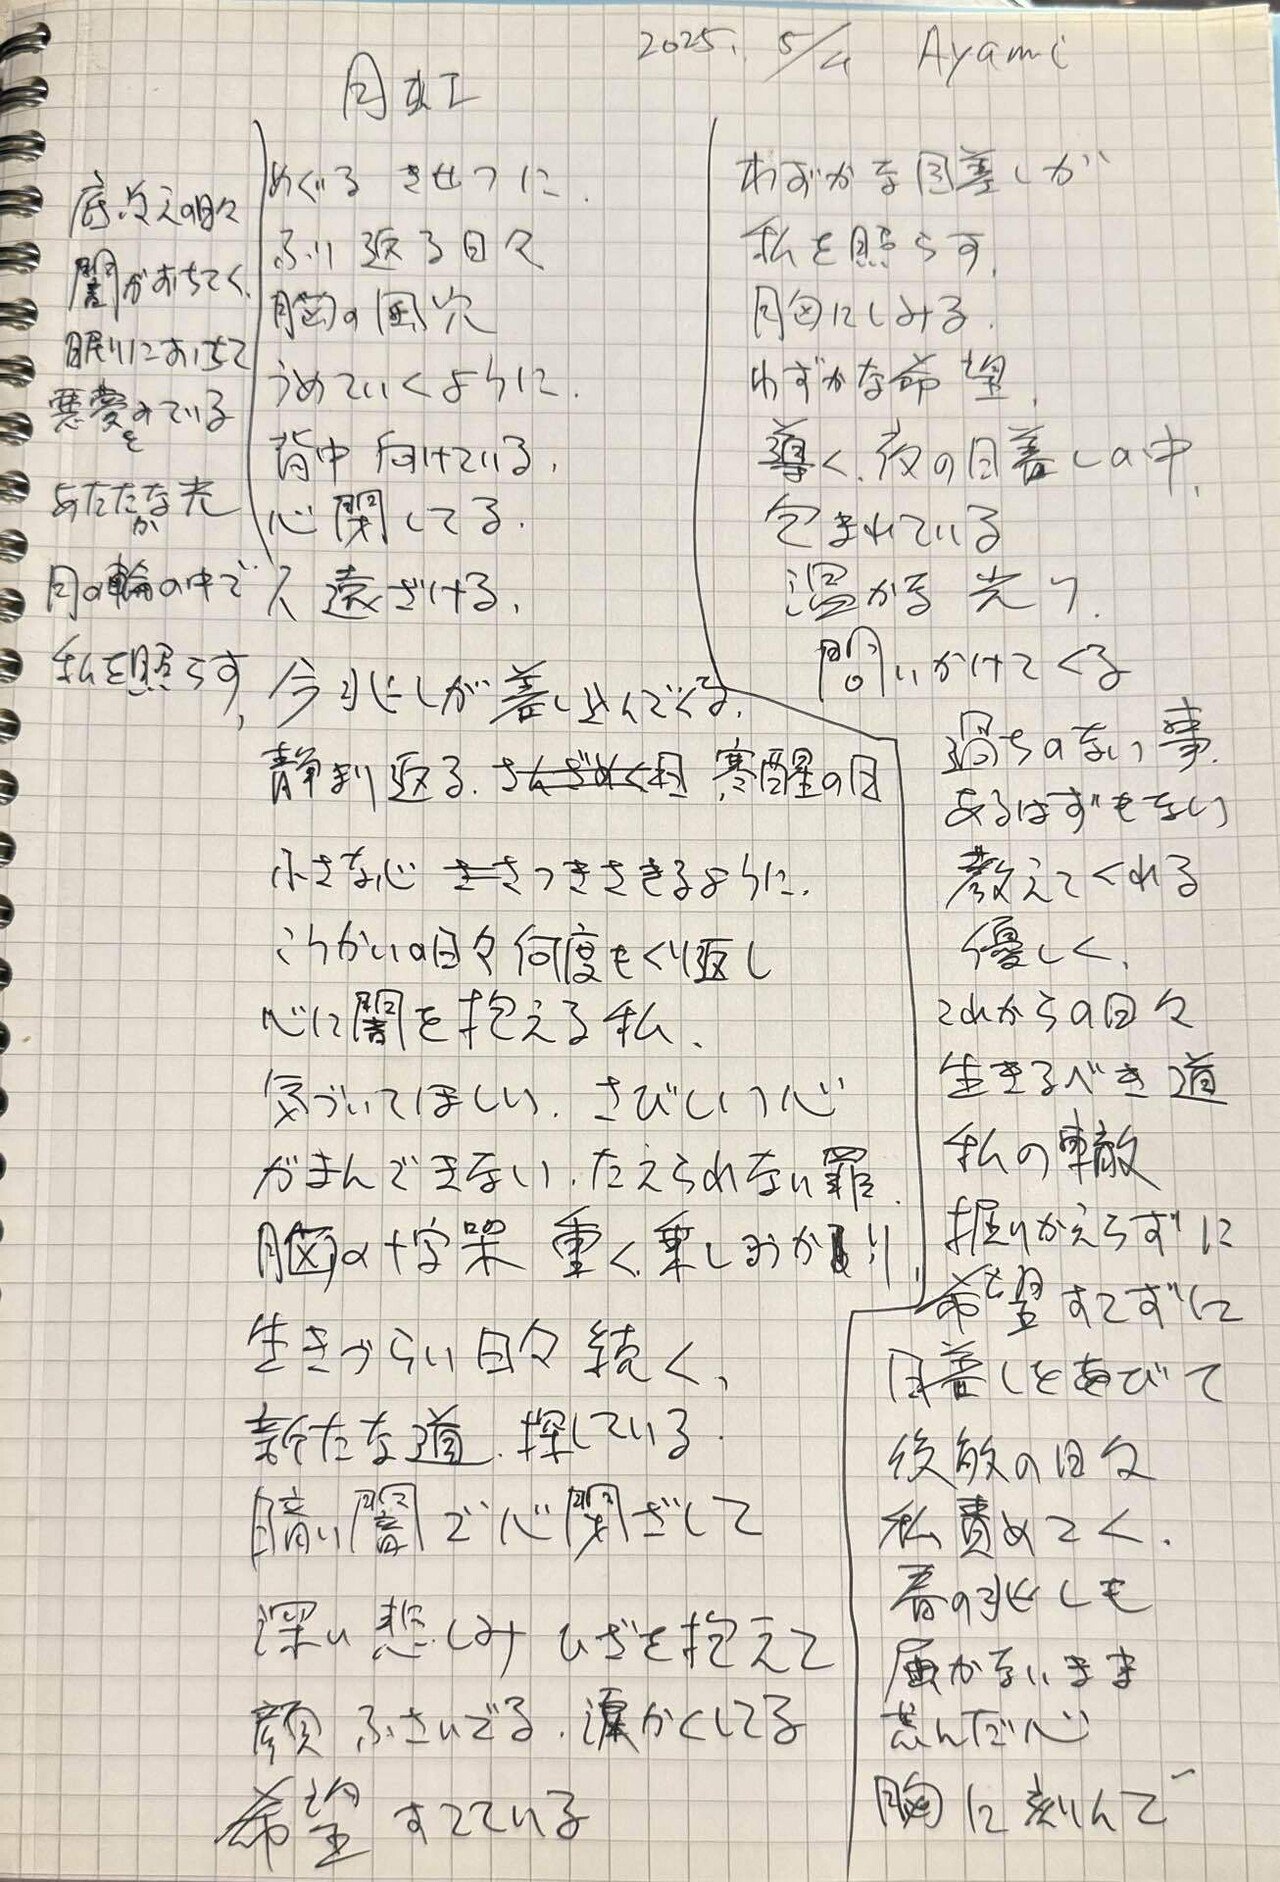 2025. 5/4 Ayami
底冷えの日々
闇がおちてく、
眠りにおちて
悪夢をみている
あたたかな光
月の輪の中で
私を照らす、
めぐる きせつに
ふり返る日々
胸の風穴
うめていくように、
背中 向けている、
心 閉してる、
人 遠ざける、
今 兆しが差し込んでくる、
静まり返る、さんざめく日 寒醒の日
小さな心 きさつきささるように、
こうかいの日々 何度もくり返し
心に闇を抱える私、
気づいてほしい、さびしい心
がまんできない、たえられない罪、
胸の十字架 重く、乗しかかり
生きづらい日々 続く、
新たな道、探している、
暗い闇で心閉ざして
深い悲しみ ひざを抱えて
顔 ふさいでる、涙かくしてる
希望 すてている
わずかな日差しが
私を照らす、
胸にしみる、
わずかな希望、
導く、夜の日差しの中、
包まれている
温かな 光り、
問いかけてくる
過ちのない事、
あるはずもない
教えてくれる
優しく、
これからの日々
生きるべき道
私の
掘りかえらずに
希望すてずに
日差しをあびて
後敏の日々
私責めてく、
春の兆しも
届かないまま
荒んだ心
胸に刻んで